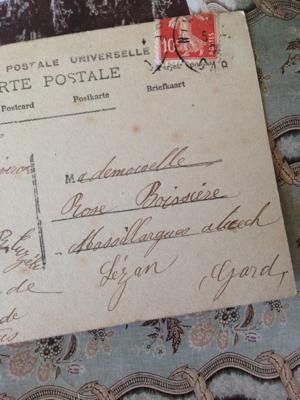 POSTALE UNIVERSELLE
RTE POSTALE
Postcard Postkarte Briefkaart
10
Mademoiselle
Rose Boissière
Massillargues atuech
Lézan (Gard)
de
de